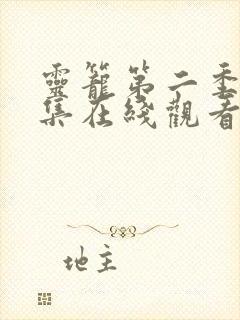 靈籠第二季
集在綫觀看
地主